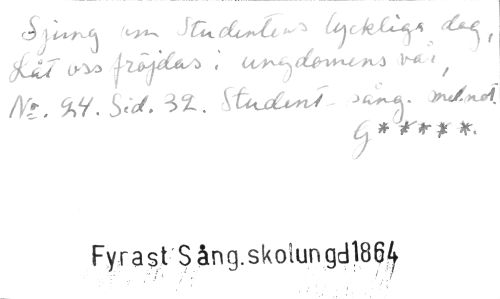 Sjung om Studentens lyckliga dag,
Låt oss fröjdas i ungdomens vår,
No. 24. Sid. 32. Student-sång. mel.not.
G*****.
Fyrast Sång.skolungd1864